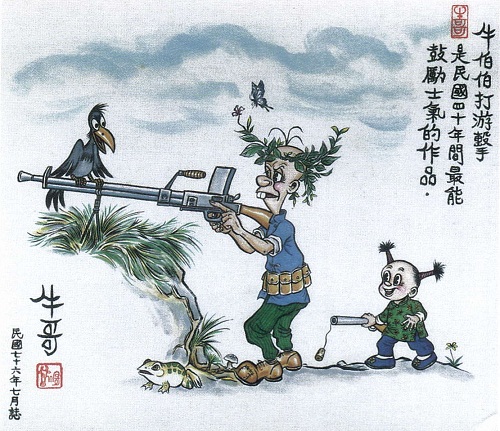 牛伯伯打游擊手
是民國四十年間最能
鼓勵士氣的作品．
牛哥
民國七十六年七月誌